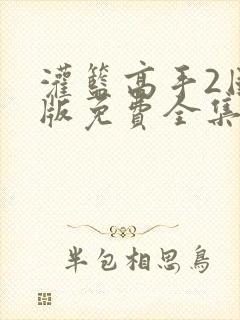 灌籃高手2国
版免费全集
半包相思鳥